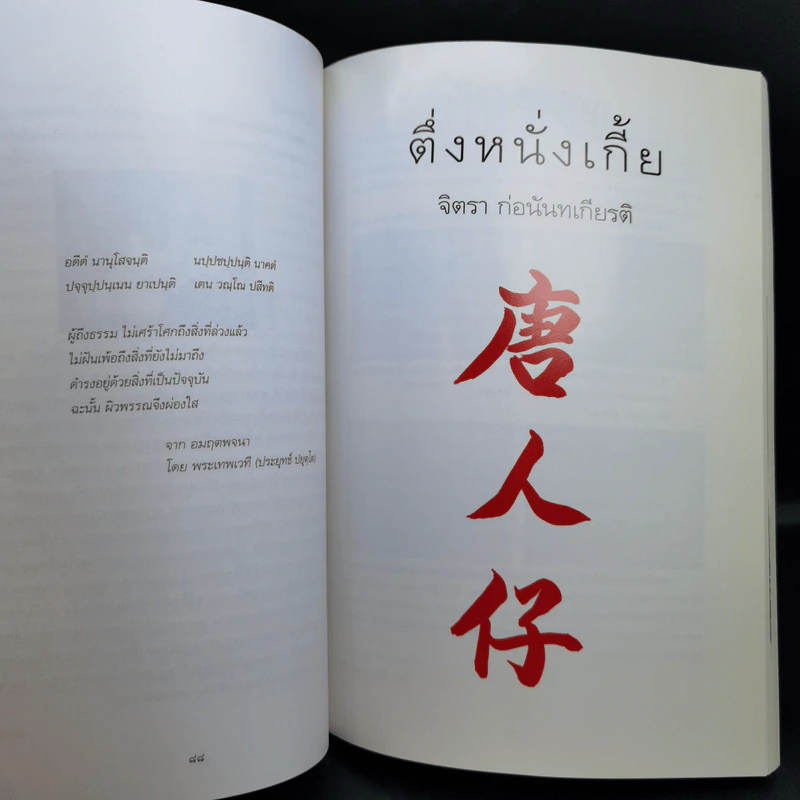 อตีตํ นานุโสจนฺติ นปฺปชปฺปนฺติ นาคตํ
ปจฺจุปฺปนฺเนน ยาเปนฺติ เตน วณฺโณ ปสีทติ
ผู้ถึงธรรม ไม่เศร้าโศกถึงสิ่งที่ล่วงแล้ว
ไม่ฝันเพ้อถึงสิ่งที่ยังไม่มาถึง
ดำรงอยู่ด้วยสิ่งที่เป็นปัจจุบัน
ฉะนั้น ผิวพรรณจึงผ่องใส
จาก อมฤตพจนา
โดย พระเทพเวที (ประยุทธ์ ปยุตฺโต)
๘๘
ตึ่งหนั่งเกี้ย
จิตรา ก่อนันทเกียรติ
唐
人
仔